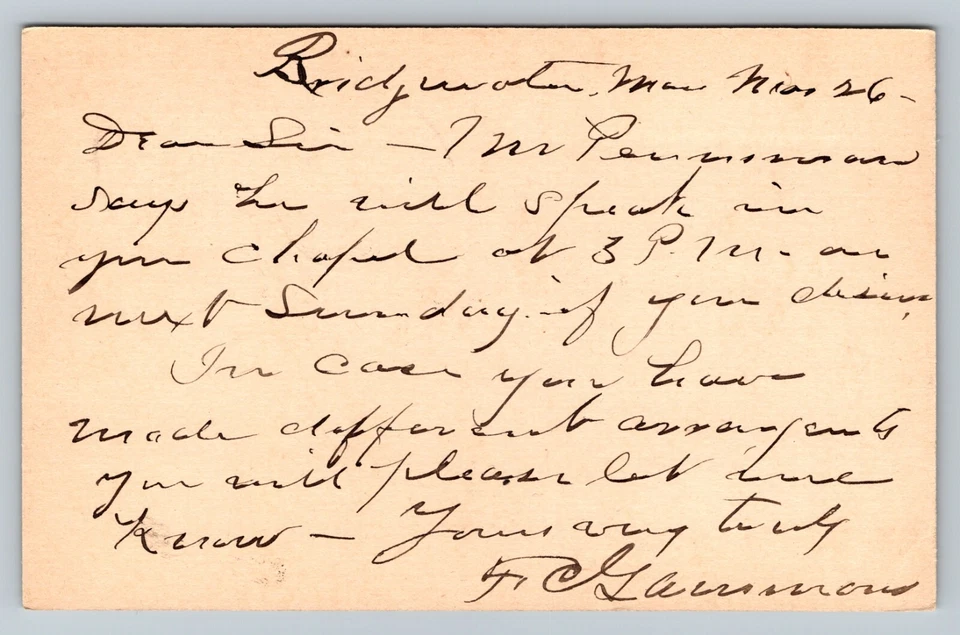 Bridgwater, Mass Nov 26-
Dear Sir - Mr
says he will speak in
your chapel at 3 P.M. on
next Sunday if you desire.
In case you have
made different arrangents
you will please let me
Know - Yours very truly
F C